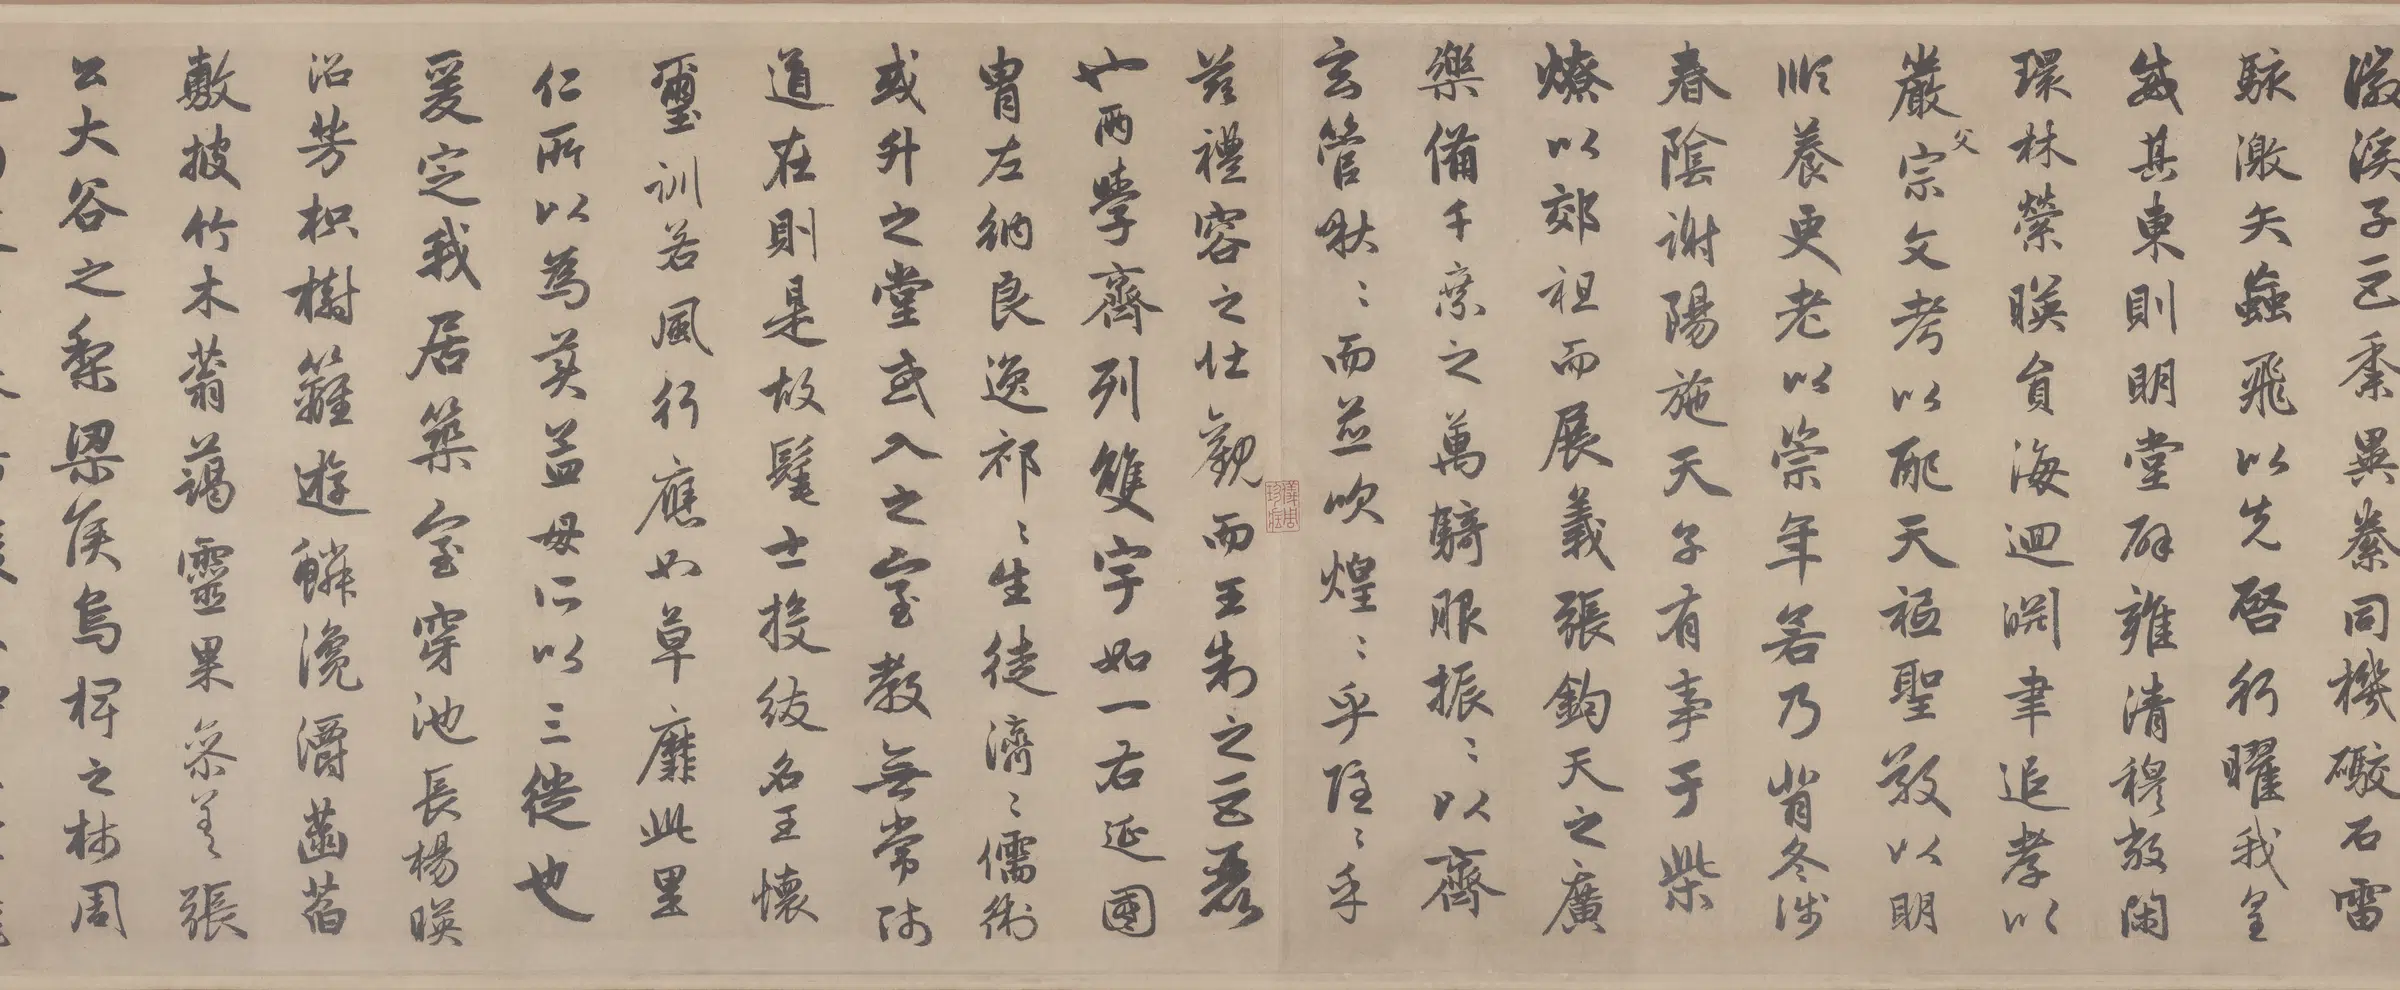 徽溪子巨黍異絭同機礮石雷
駭激矢蝱飛以先啓行曜我皇
威其東則明堂辟雍清穆敞閑
環林縈暎員海迴淵聿追孝以
嚴父宗文考以配天祗聖敬以明
順養更老以崇年若乃背冬涉
春陰謝陽施天子有事于柴
燎以郊祖而展義張鈞天之廣
樂備千乘之萬騎服振〻以齊
玄管啾〻而並吹煌〻乎隱〻乎
茲禮容之壯觀而王制之巨麗
也兩學齊列雙宇如一右延國
胄左納良逸祁〻生徒濟〻儒術
或升之堂或入之室教無常師
道在則是故髦士投紱名王懷
璽訓若風行應如草靡此里
仁所以為美孟母所以三徙也
爰定我居築室穿池長楊暎
沼芳枳樹籬遊鱗瀺灂菡萏
敷披竹木蓊藹靈果參差張
公大谷之梨梁侯烏椑之柿周
儀周珍藏